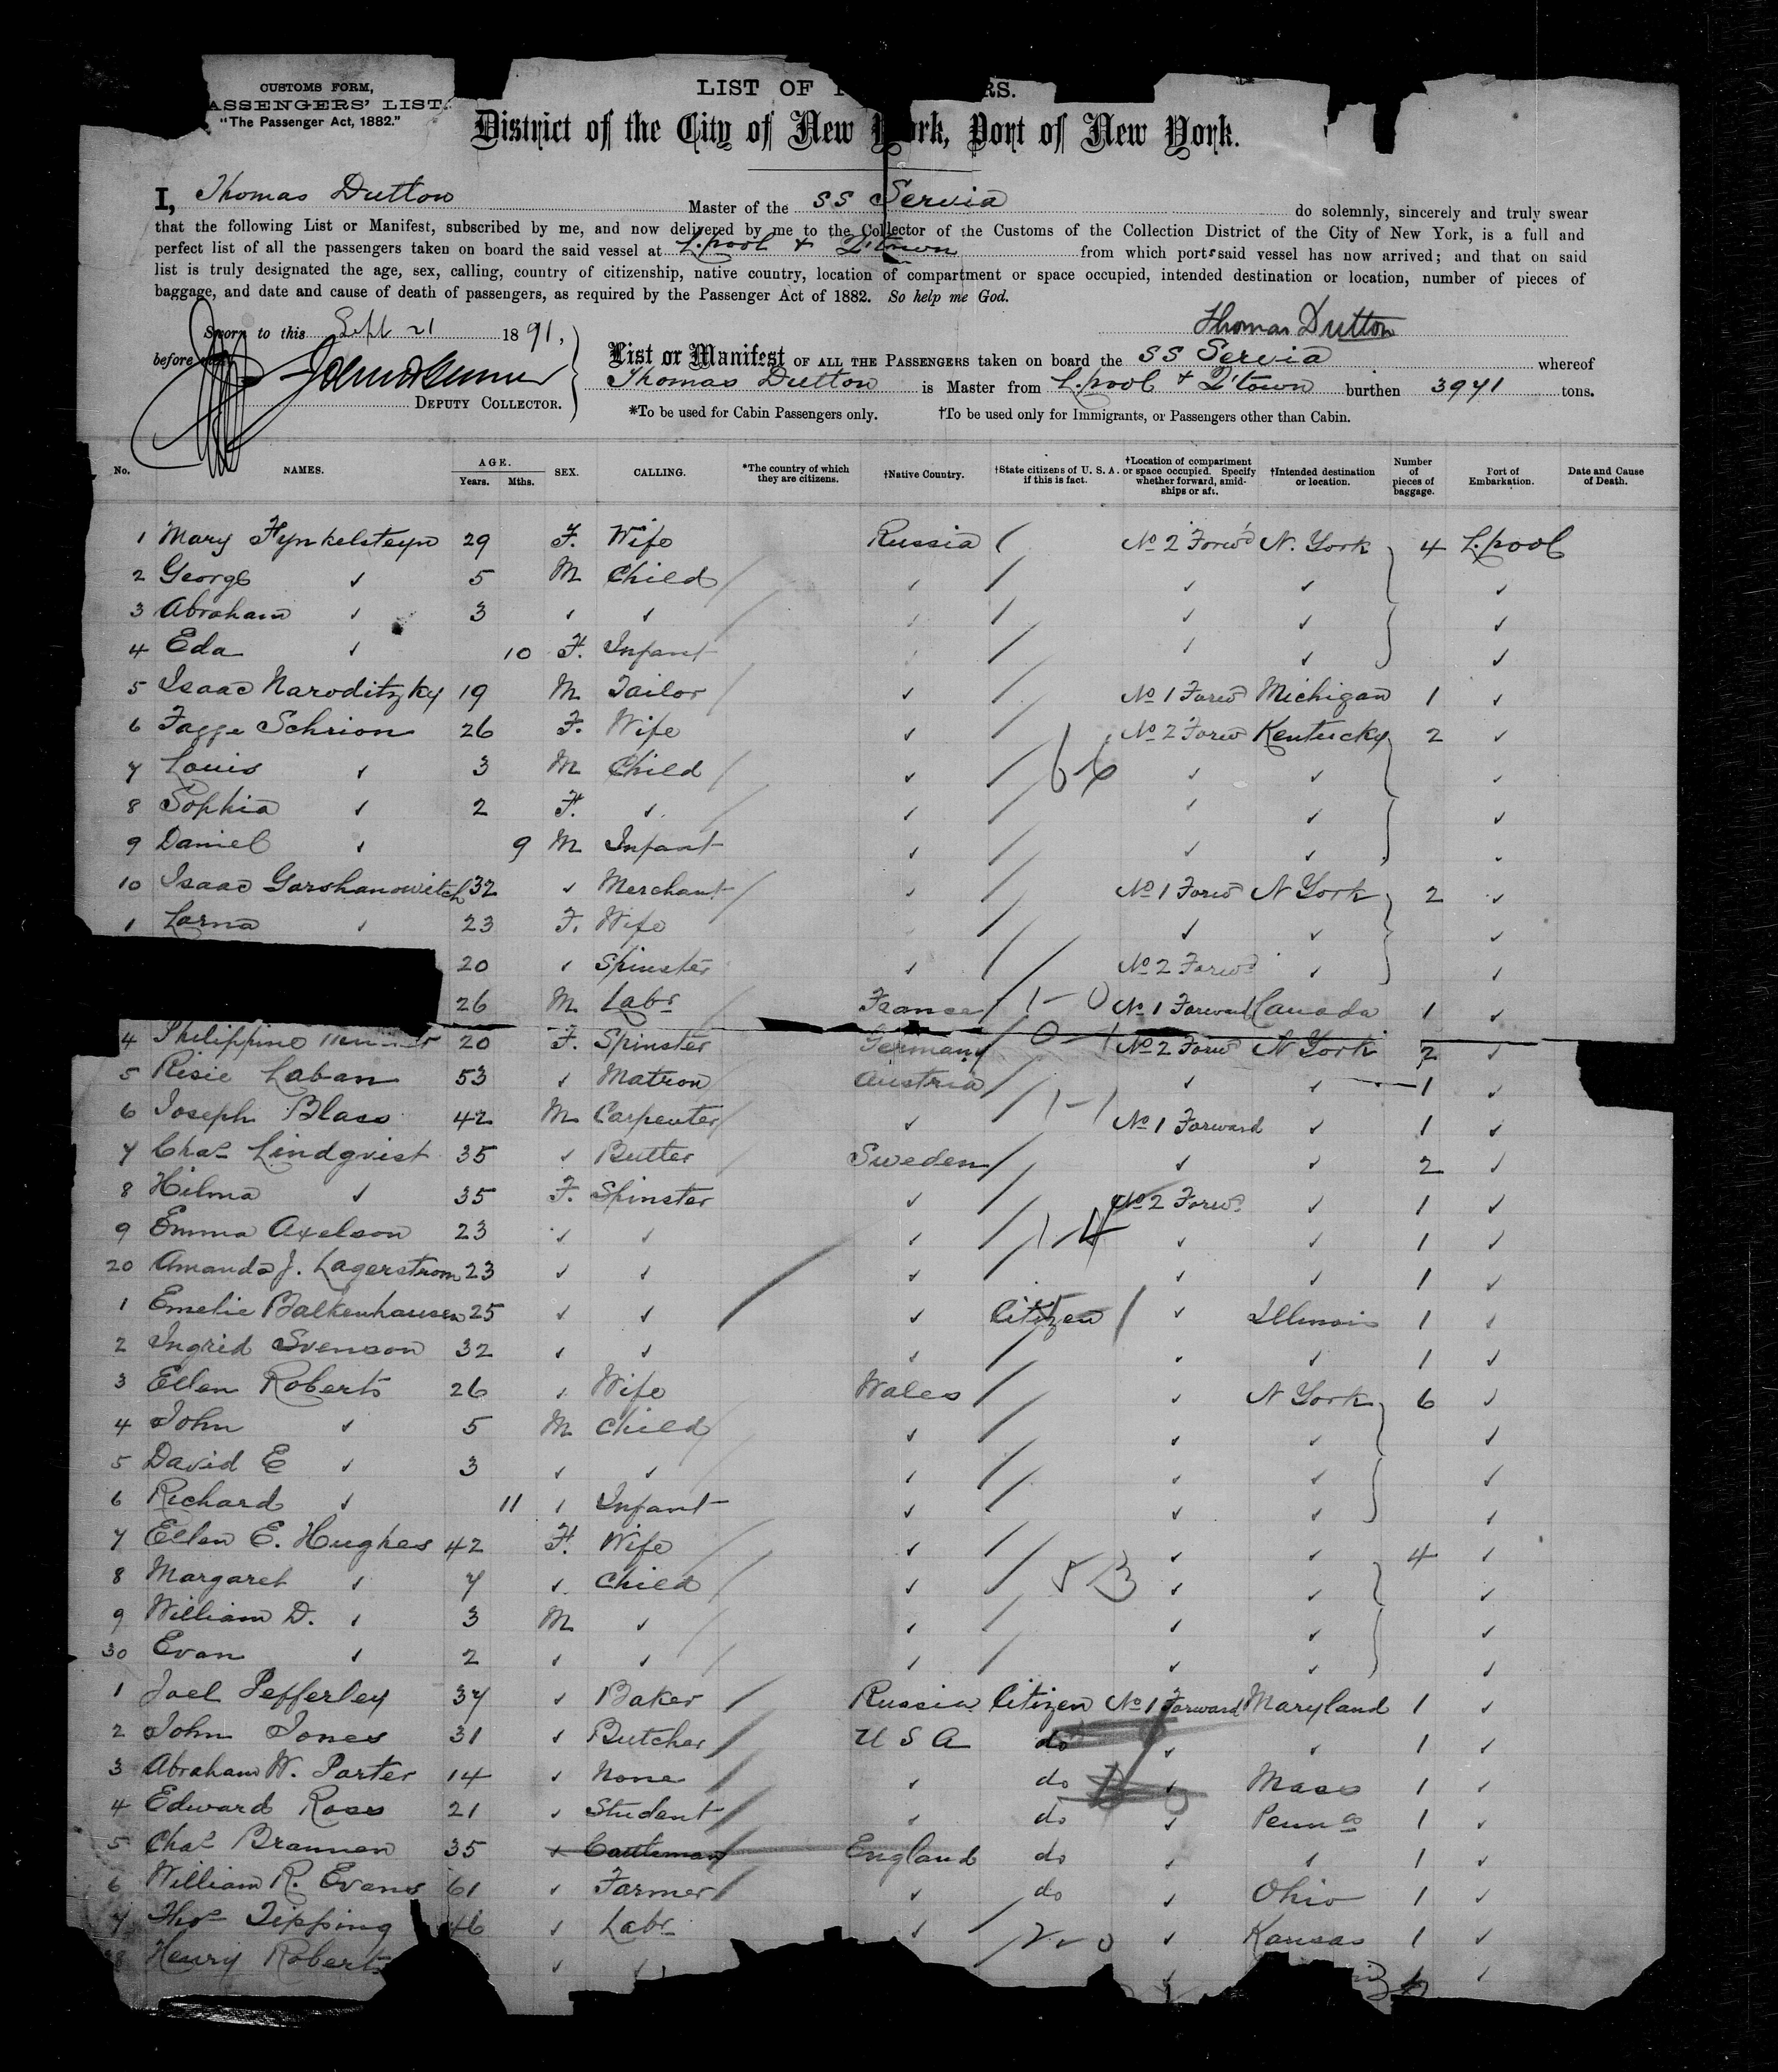 CUSTOMS FORM,
ASSENGERS' LIST.
"The Passenger Act, 1882."
LIST OF RS.
District of the City of New York, Port of New York.
I, Thomas Dutton Master of the SS Servia do solemnly, sincerely and truly swear
that the following List or Manifest, subscribed by me, and now delivered by me to the Collector of the Customs of the Collection District of the City of New York, is a full and
perfect list of all the passengers taken on board the said vessel at L.pool & Q'town from which ports said vessel has now arrived; and that on said
list is truly designated the age, sex, calling, country of citizenship, native country, location of compartment or space occupied, intended destination or location, number of pieces of
baggage, and date and cause of death of passengers, as required by the Passenger Act of 1882. So help me God.
Sworn to this Sept 21 1891, Thomas Dutton
before
List or Manifest OF ALL THE PASSENGERS taken on board the SS Servia whereof
Thomas Dutton is Master from L.pool & Q'town burthen 3941 tons.
DEPUTY COLLECTOR.
*To be used for Cabin Passengers only. †To be used only for Immigrants, or Passengers other than Cabin.
No. NAMES. AGE. Years. Mths. SEX. CALLING. *The country of which they are citizens. †Native Country. †State citizens of U. S. A. if this is fact. †Location of compartment or space occupied. Specify whether forward, amidships or aft. †Intended destination or location. Number of pieces of baggage. Port of Embarkation. Date and Cause of Death.
1 Mary Fynkelsteyn 29 F. Wife Russia No 2 Forwd N. York 4 L.pool
2 George ✓ 5 M Child ✓ ✓ ✓ ✓
3 Abraham ✓ 3 ✓ ✓ ✓ ✓ ✓ ✓
4 Eda ✓ 10 F. Infant ✓ ✓ ✓ ✓
5 Isaac Naroditzky 19 M Tailor ✓ No 1 Forwd Michigan 1 ✓
6 Fagge Schrion 26 F. Wife ✓ No 2 Forwd Kentucky 2 ✓
7 Louis ✓ 3 M Child ✓ ✓ ✓ ✓
8 Sophia ✓ 2 F. ✓ ✓ ✓ ✓ ✓
9 Daniel ✓ 9 M Infant ✓ ✓ ✓ ✓
10 Isaac Garshanowitch 32 ✓ Merchant ✓ No 1 Forwd N York 2 ✓
1 Larna ✓ 23 F. Wife ✓ ✓ ✓
20 ✓ Spinster ✓ No 2 Forwd ✓ ✓
26 M Labr France No 1 Forward Canada 1 ✓
4 Philippine 20 F. Spinster Germany No 2 Forwd N York 2 ✓
5 Risie Laban 53 ✓ Matron Austria ✓ ✓ 1 ✓
6 Joseph Blass 42 M Carpenter ✓ No 1 Forward ✓ 1 ✓
7 Chas Lindqvist 35 ✓ Butler Sweden ✓ ✓ 2 ✓
8 Hilma ✓ 35 F. Spinster ✓ No 2 Forwd ✓ 1 ✓
9 Emma Axelson 23 ✓ ✓ ✓ ✓ ✓ 1 ✓
20 Amanda J. Lagerstrom 23 ✓ ✓ ✓ ✓ ✓ 1 ✓
1 Emelie Balkenhausen 25 ✓ ✓ ✓ Citizen ✓ Illinois 1 ✓
2 Ingrid Svenson 32 ✓ ✓ ✓ ✓ ✓ 1 ✓
3 Ellen Roberts 26 ✓ Wife Wales ✓ N York 6 ✓
4 John ✓ 5 M Child ✓ ✓ ✓ ✓
5 David E ✓ 3 ✓ ✓ ✓ ✓ ✓ ✓
6 Richard ✓ 11 ✓ Infant ✓ ✓ ✓ ✓
7 Ellen E. Hughes 42 F. Wife ✓ ✓ ✓ 4 ✓
8 Margaret ✓ 7 ✓ Child ✓ ✓ ✓ ✓
9 William D. ✓ 3 M ✓ ✓ ✓ ✓ ✓
30 Evan ✓ 2 ✓ ✓ ✓ ✓ ✓ ✓
1 Joel Pefferley 37 ✓ Baker Russia Citizen No 1 Forward Maryland 1 ✓
2 John Jones 31 ✓ Butcher U S A do ✓ ✓ 1 ✓
3 Abraham W. Porter 14 ✓ None ✓ do ✓ Mass 1 ✓
4 Edward Ross 21 ✓ Student ✓ do ✓ Penna 1 ✓
5 Chas Brannen 35 ✓ Cattleman England do ✓ ✓ 1 ✓
6 William R. Evans 61 ✓ Farmer ✓ do ✓ Ohio 1 ✓
7 Thos Tipping 46 ✓ Labr ✓ ✓ Kansas 1 ✓
8 Henry Roberts ✓ ✓ ✓ ✓